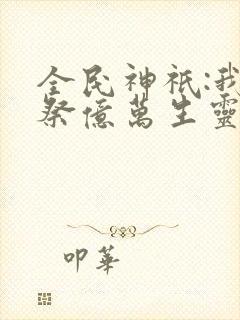 全民神祇:我
祭億萬生靈
叩華